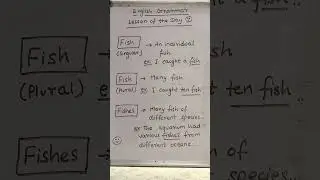 English Grammar
Lesson of the Day
Fish
(Singular)
→ An individual
fish
Ex: I caught a fish
Fish
(Plural)
→ Many fish
Ex: I caught ten fish
Fishes
→ Many fish of
different species.
Ex: The aquarium had
various fishes from
different oceans.
(Plural)
ten fish
Fishes
of
species